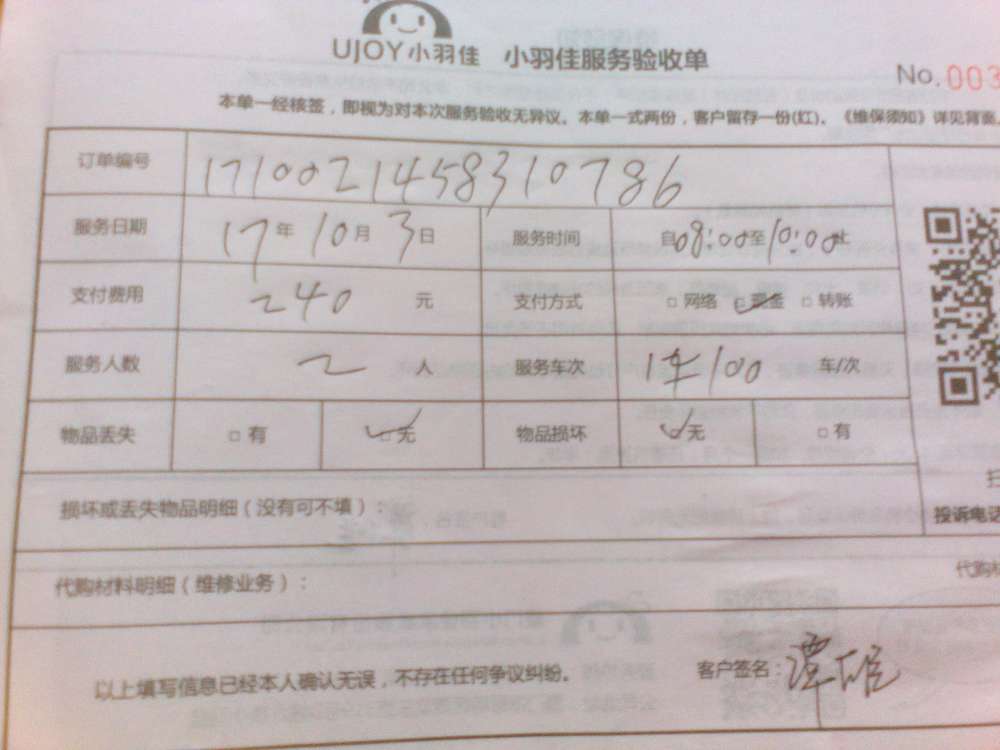 UJOY小羽佳 小羽佳服务验收单
No. 003
本单一经核签，即视为对本次服务验收无异议。本单一式两份，客户留存一份(红)。《维保须知》详见背面。
订单编号 1710021458310786
服务日期 17年10月3日 服务时间 自08:00至10:00止
支付费用 240 元 支付方式 □网络 ☑现金 □转账
服务人数 2 人 服务车次 车/次
物品丢失 □有 ☑无 物品损坏 ☑无 □有
损坏或丢失物品明细（没有可不填）：
投诉电话
代购材料明细（维修业务）： 代购材
以上填写信息已经本人确认无误，不存在任何争议纠纷。 客户签名：谭雄